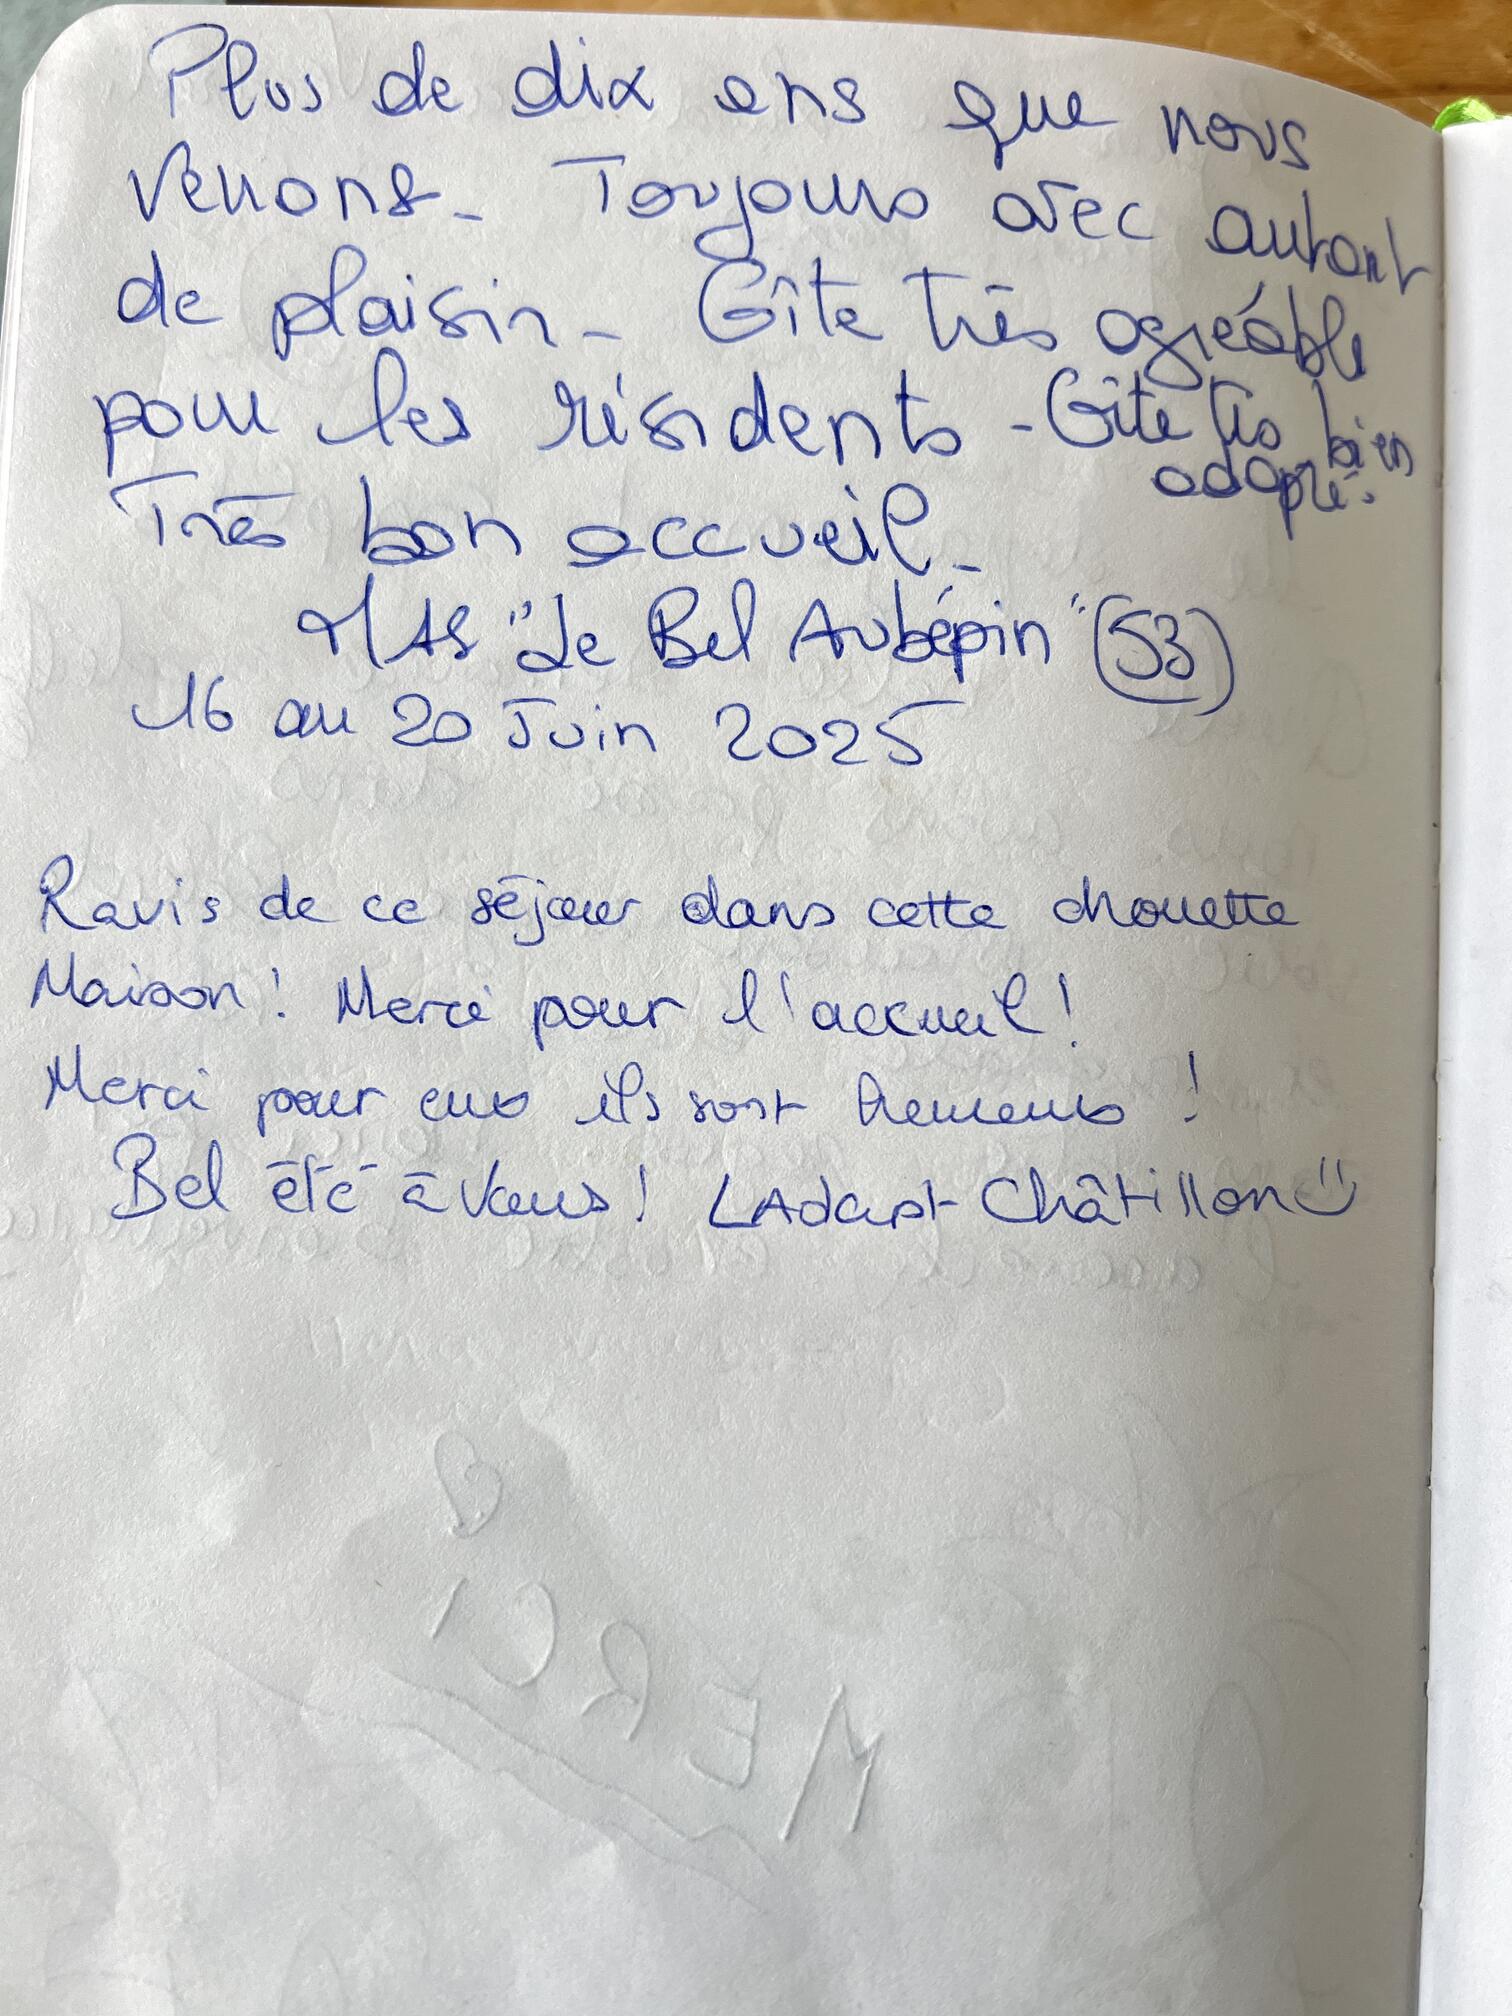 Plus de dix ans que nous
venons - Toujours avec autant
de plaisir - Gîte très agréable
pour les résidents - Gîte très bien
adapté.
Très bon accueil -
MAS "Le Bel Aubépin" (53)
16 au 20 Juin 2025
Ravis de ce séjour dans cette chouette
Maison ! Merci pour l'accueil !
Merci pour eux ils sont heureux !
Bel été à vous ! LAdapt Châtillon
MERCI